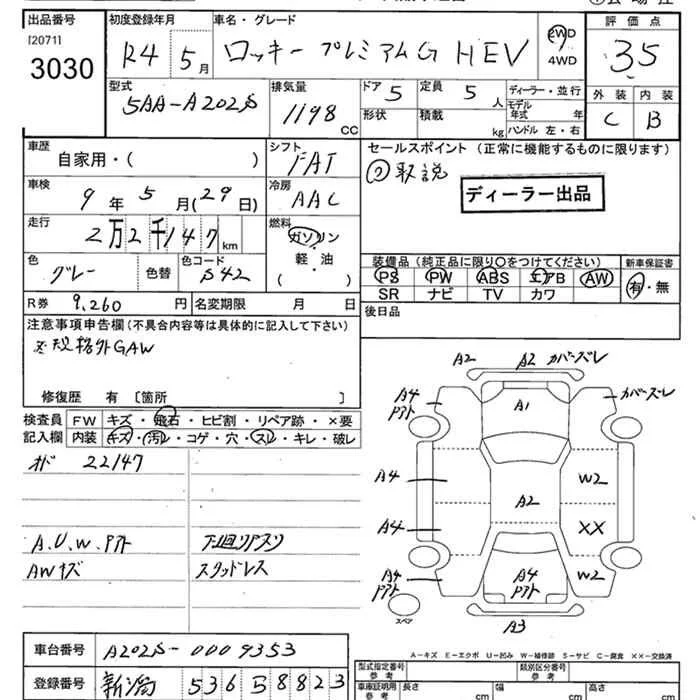 出品番号 初度登録年月 車名・グレード 評価点
[2071]
3030 R4 5月 ロッキー プレミアムG HEV 2WD 3.5
4WD
型式 排気量 ドア 定員 ディーラー・並行 外装 内装
5AA-A202S 1198 CC 5 5人 モデル年式 年 C B
形状 積載 kg ハンドル 左・右
車歴 シフト セールスポイント (正常に機能するものに限ります)
自家用・( ) FAT ②取説
車検 冷房 ディーラー出品
9年 5月(29日) AAC
走行 燃料
2万2千147km ガソリン
軽・油
( )
色 色替 色コード 装備品 (純正品に限り○をつけてください) 新車保証書
グレー S42 PS PW ABS エアB AW 有・無
SR ナビ TV カワ
R券 9,260円 名変期限 月 日 後日品
注意事項申告欄 (不具合内容等は具体的に記入して下さい)
規格外GAW
修復歴 有 〔箇所 〕
検査員 FW キズ・飛石・ヒビ割・リペア跡・×要
記入欄 内装 キズ・汚レ・コゲ・穴・スレ・キレ・破レ
オド 22147
A.U.W.Pアト 下廻リサフリ
AWキズ スタッドレス
A2 A2 カバーズレ
A4 Pアト A1 カバーズレ
A4 W2
A2
A4 XX
A4 Pアト A4 Pアト W2
スペア A3
A-キズ E-エクボ U-凹み W-補修跡 S-サビ C-腐食 XX-交換済
車台番号 A202S-0009353
登録番号 新潟 536 5 8823
型式指定番号 参考 類別区分番号 参考
車庫証明用 参考 長さ cm 幅 cm 高さ cm